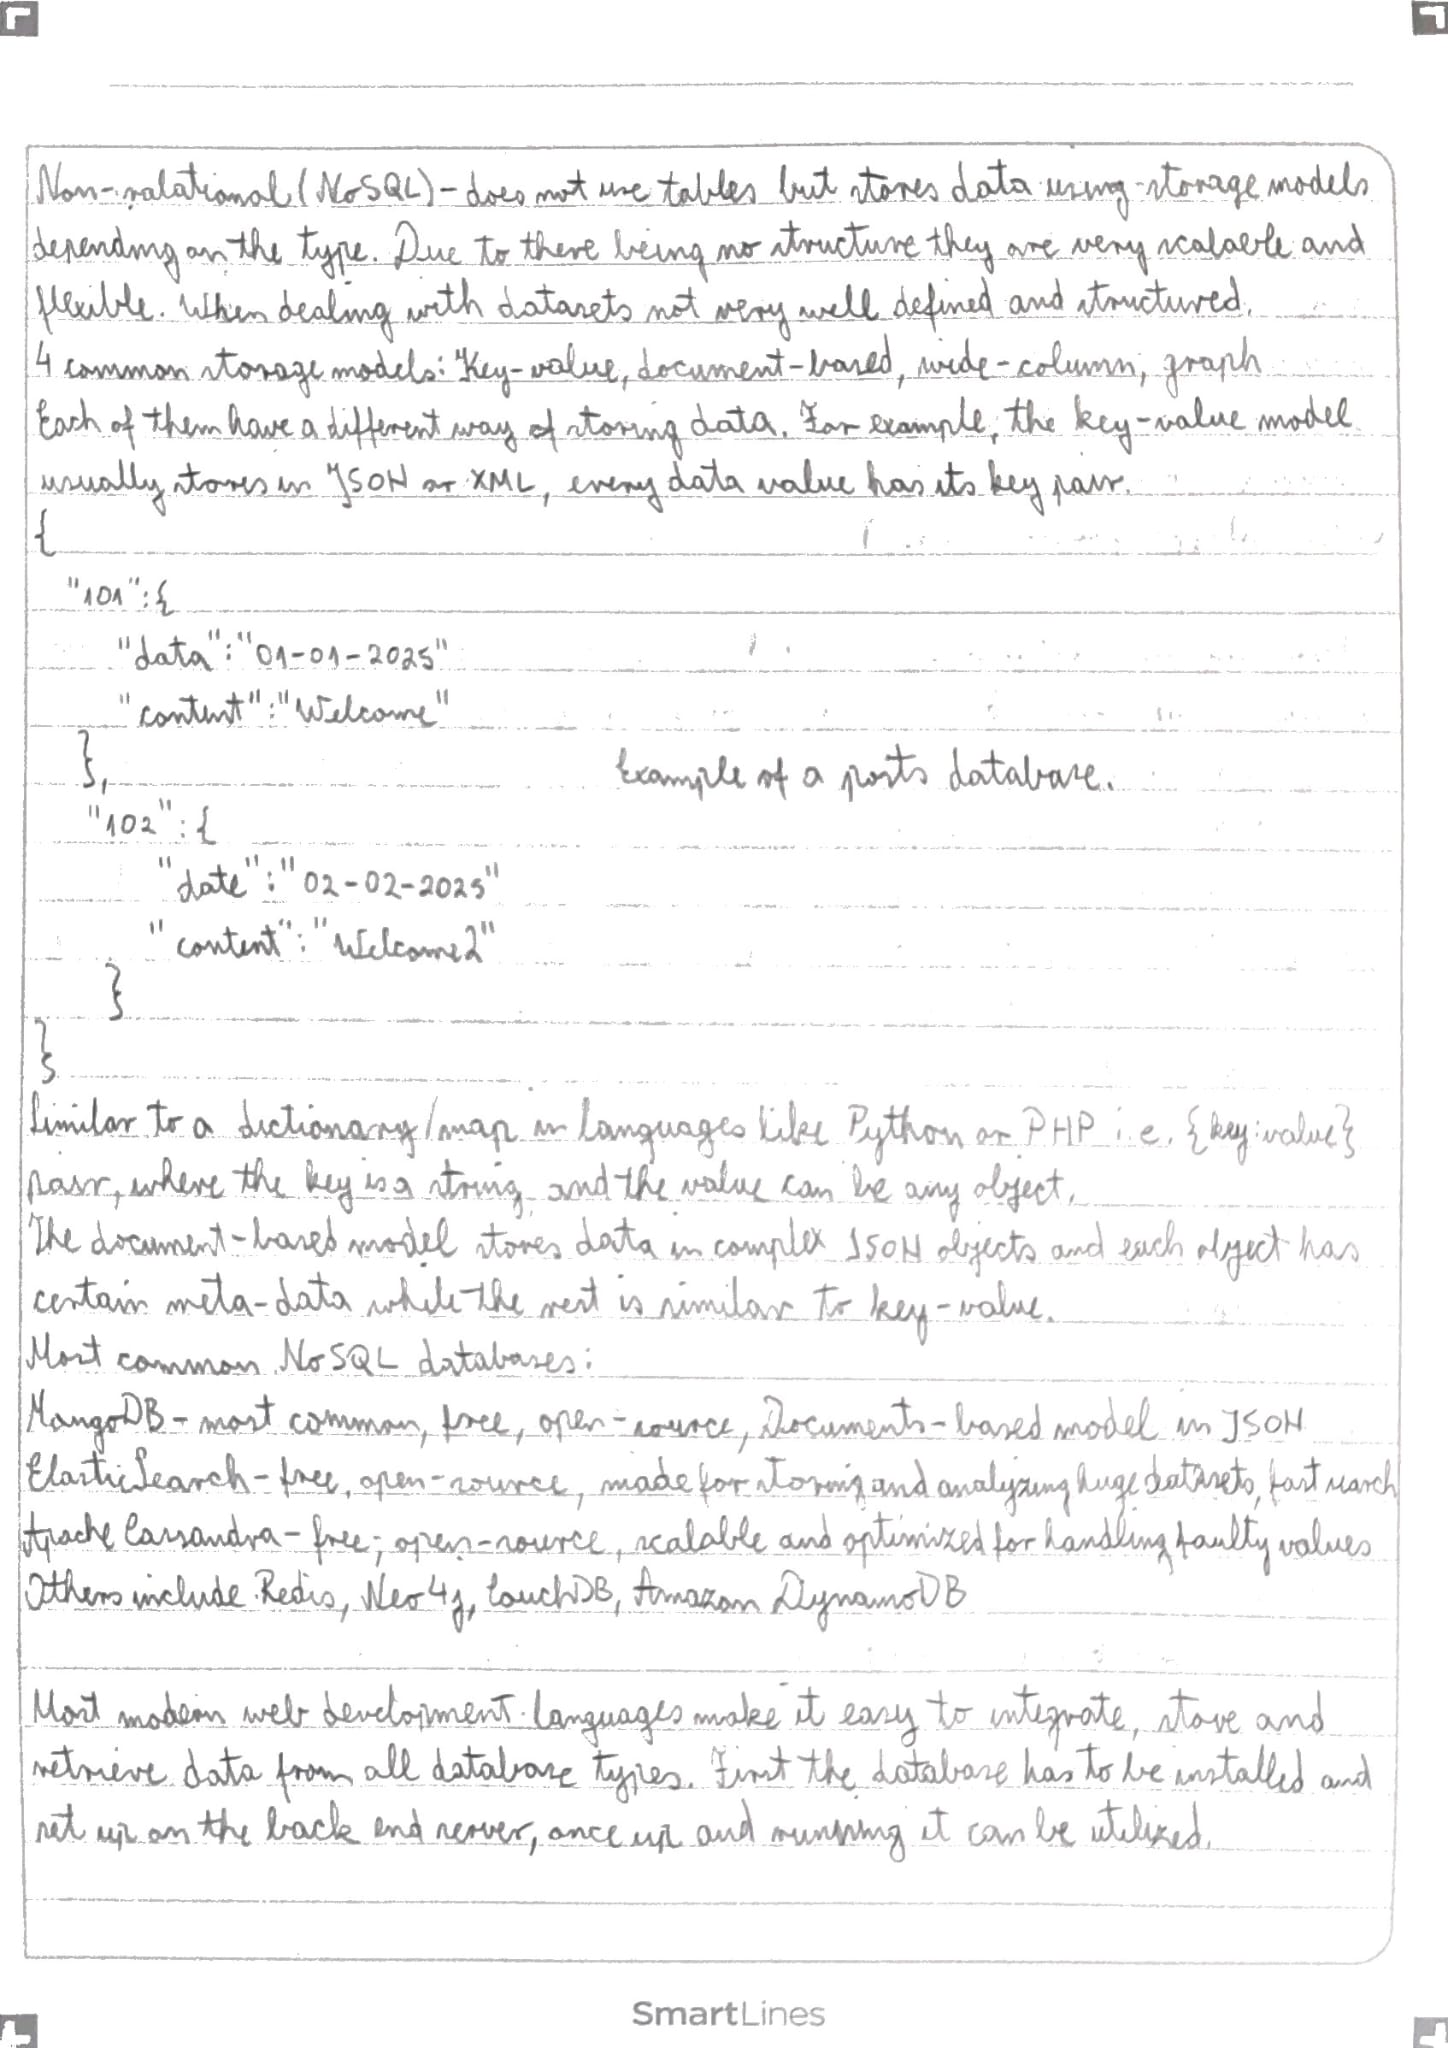 Non-ralational (NoSQL) - does not use tables but stores data using storage models
depending on the type. Due to there being no structure they are very scalable and
flexible. When dealing with datasets not very well defined and structured.
4 common storage models: Key-value, document-based, wide-column, graph
Each of them have a different way of storing data. For example, the key-value model
usually stores in JSON or XML, every data value has its key pair.
{
"101":{
"data":"01-01-2025"
"content":"Welcome"
},
Example of a posts database.
"102":{
"date":"02-02-2025"
"content":"Welcome2"
}
}
Similar to a dictionary/map in languages like Python or PHP i.e. {key:value}
pair, where the key is a string and the value can be any object.
The document-based model stores data in complex JSON objects and each object has
certain meta-data while the rest is similar to key-value.
Most common NoSQL databases:
MangoDB - most common, free, open-source, Documents-based model in JSON
ElasticSearch - free, open-source, made for storing and analyzing huge datasets, fast search
Apache Cassandra - free, open-source, scalable and optimized for handling faulty values
Others include Redis, Neo4j, CouchDB, Amazon DynamoDB
Most modern web development languages make it easy to integrate, store and
retrieve data from all database types. First the database has to be installed and
set up on the back end server, once up and running it can be utilized.
SmartLines